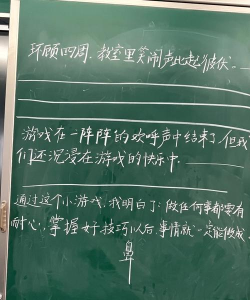 环顾四周，教室里笑闹声此起彼伏．
游戏在一阵阵的欢呼声中结束了，但我
们还沉浸在游戏的快乐中．
通过这个小游戏，我明白了：做任何事都要有
耐心，掌握好技巧以后，事情就一定能做成．
鼻